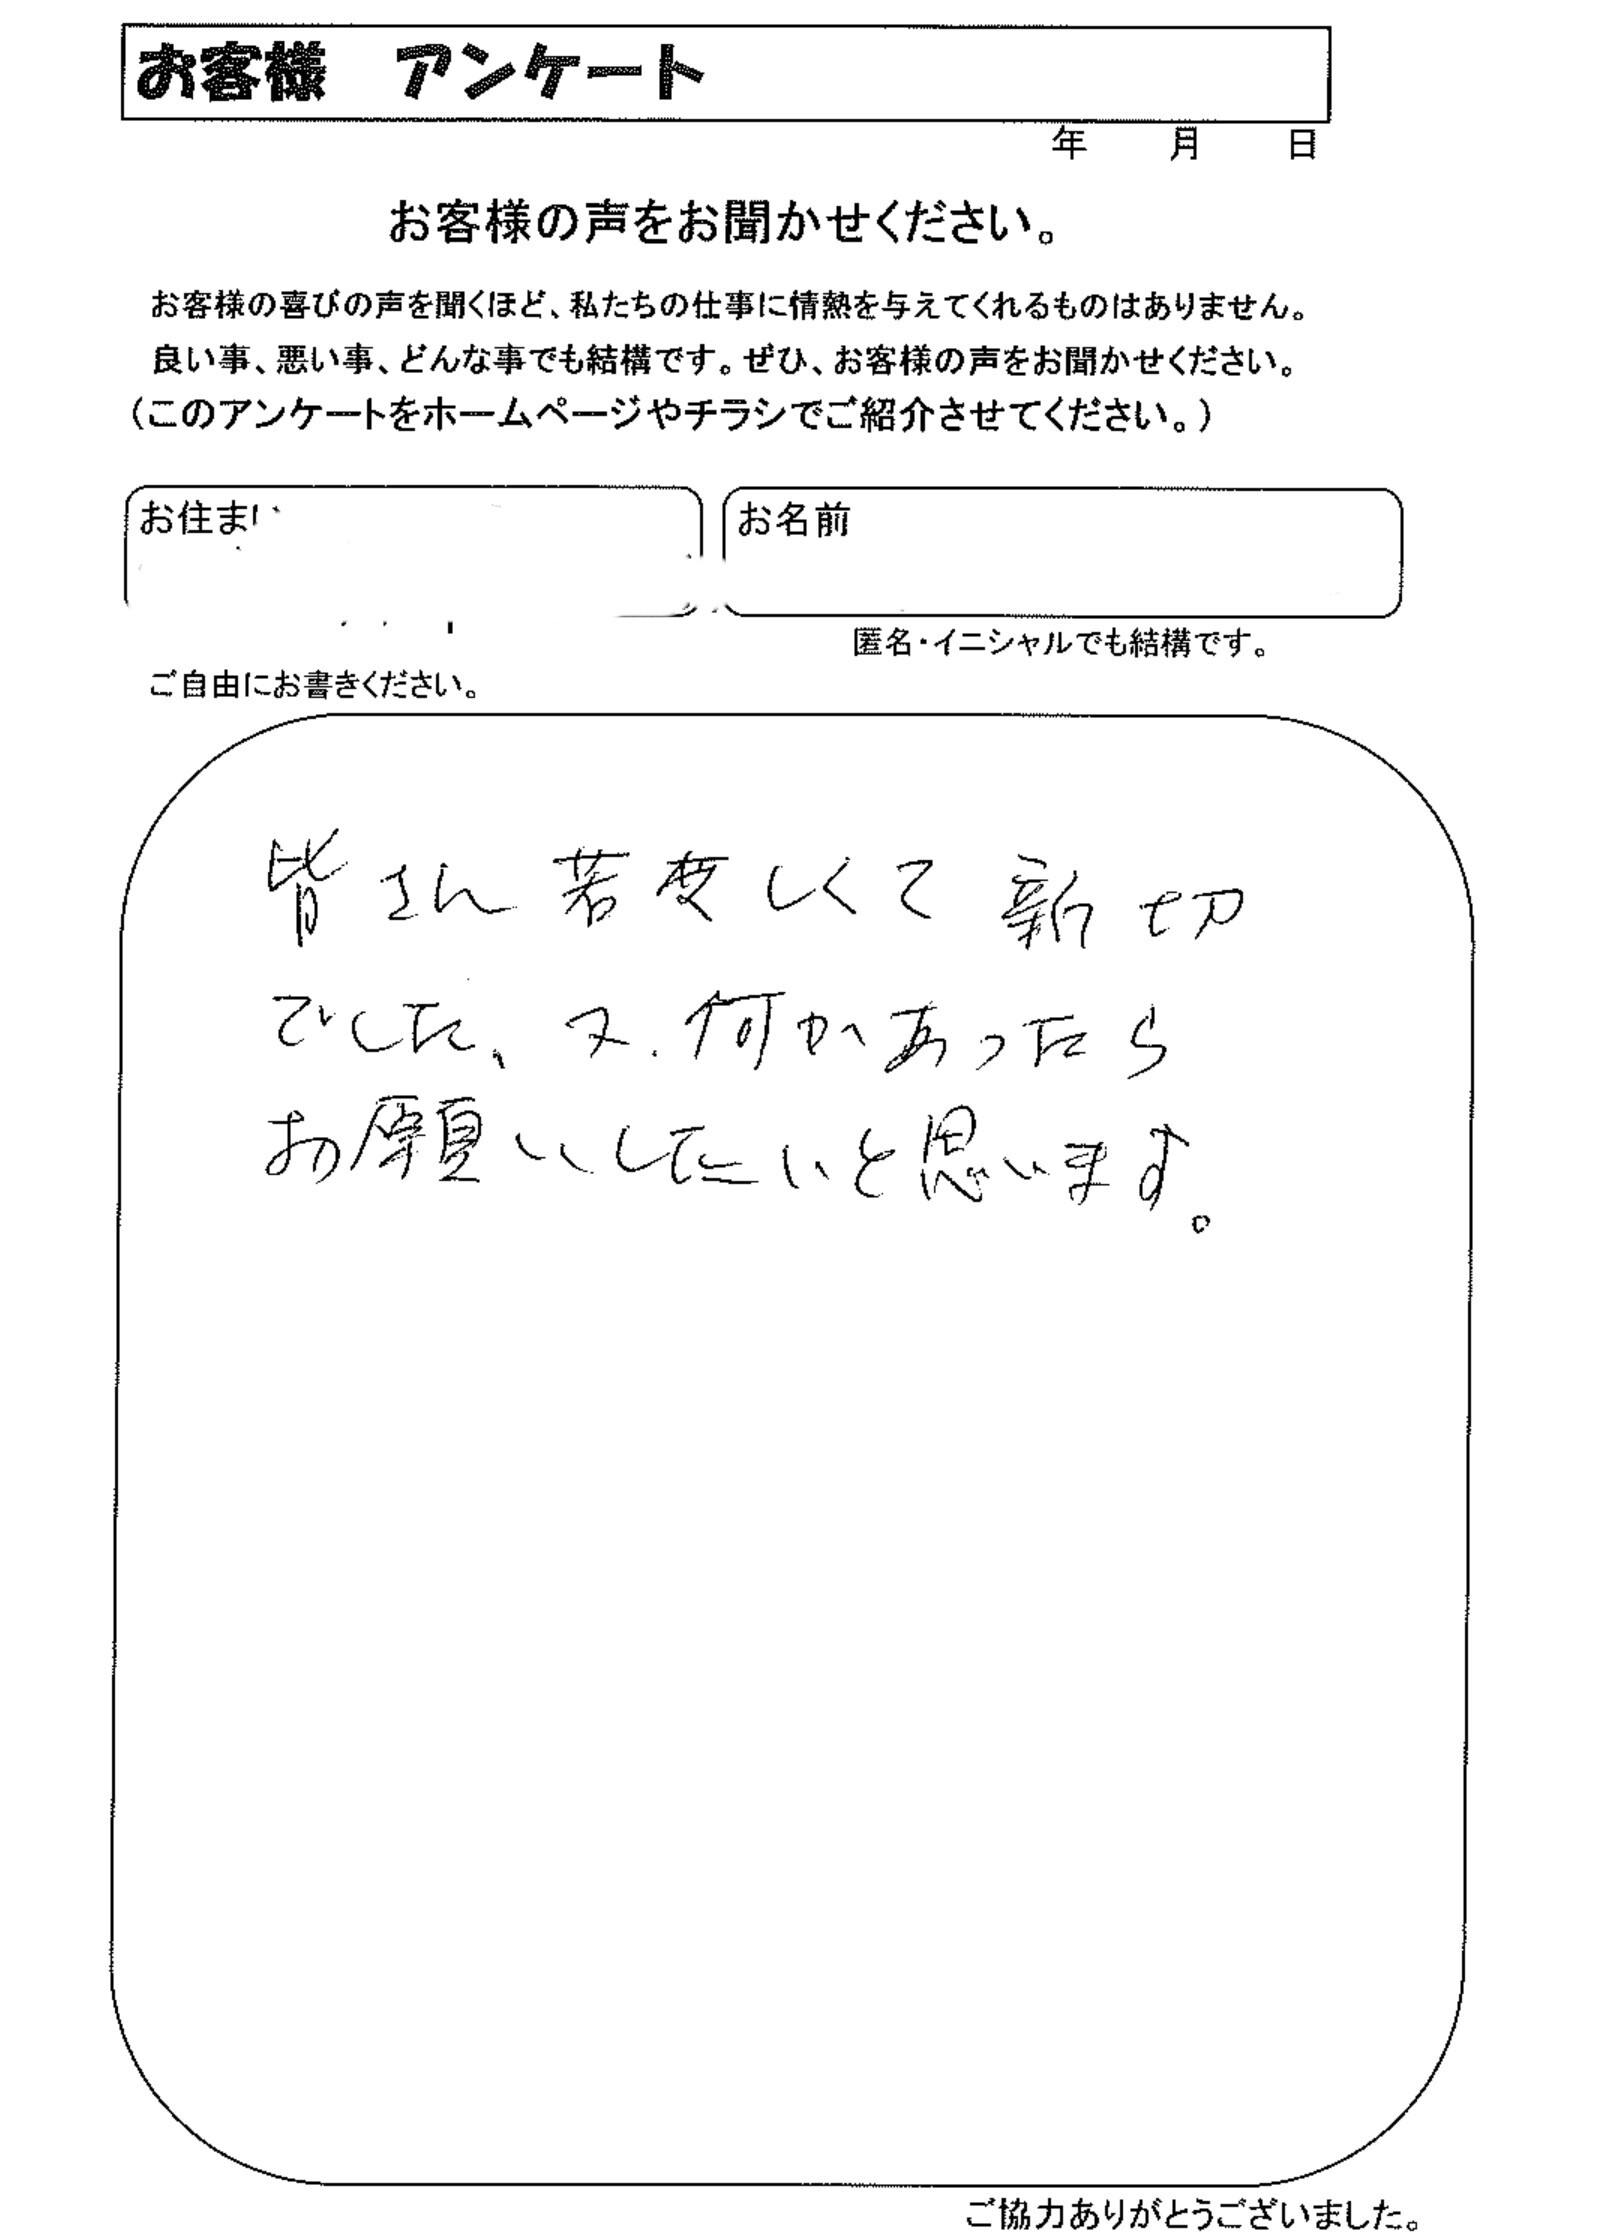 お客様 アンケート
年 月 日
お客様の声をお聞かせください。
お客様の喜びの声を聞くほど、私たちの仕事に情熱を与えてくれるものはありません。
良い事、悪い事、どんな事でも結構です。ぜひ、お客様の声をお聞かせください。
（このアンケートをホームページやチラシでご紹介させてください。）
お住まい お名前
匿名・イニシャルでも結構です。
ご自由にお書きください。
皆さん若々しくて 新切
でした、又、何かあったら
お願いしたいと思います。
ご協力ありがとうございました。